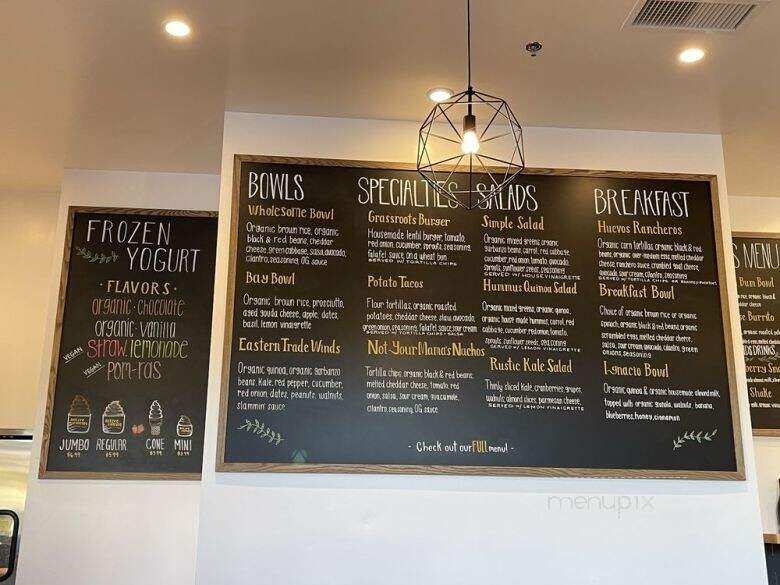 FROZEN
YOGURT
· FLAVORS ·
organic · chocolate
organic · vanilla
VEGAN straw. lemonade
VEGAN pom-tas
JUMBO REGULAR CONE MINI
BOWLS
Wholesome Bowl
Organic brown rice, organic
black & red beans, cheddar
cheese, green cabbage, salsa, avocado,
cilantro, seasoning, OG sauce
Bay Bowl
Organic brown rice, prosciutto,
aged gouda cheese, apple, dates,
basil, lemon vinaigrette
Eastern Trade Winds
Organic quinoa, organic garbanzo
beans, kale, red pepper, cucumber,
red onion, dates, peanuts, walnuts,
slammin' sauce
SPECIALTIES
Grassroots Burger
Housemade lentil burger, tomato,
red onion, cucumber, sprouts, seasoning,
falafel sauce, on a wheat bun
SERVED W/ TORTILLA CHIPS
Potato Tacos
Flour tortillas, organic roasted
potatoes, cheddar cheese, slaw, avocado,
green onion, seasoning, falafel sauce, sour cream
SERVED W/ TORTILLA CHIPS + SALSA
Not Your Mama's Nachos
Tortilla chips, organic black & red beans,
melted cheddar cheese, tomato, red
onion, salsa, sour cream, guacamole,
cilantro, seasoning, OG sauce
SALADS
Simple Salad
Organic mixed greens, organic
garbanzo beans, carrot, red cabbage,
cucumber, red onion, tomato, avocado,
sprouts, sunflower seeds, seasoning
SERVED W/ HOUSE VINAIGRETTE
Hummus Quinoa Salad
Organic mixed greens, organic quinoa,
organic house made hummus, carrot, red
cabbage, cucumber, red onion, tomato,
sprouts, sunflower seeds, seasoning
SERVED W/ LEMON VINAIGRETTE
Rustic Kale Salad
Thinly sliced kale, cranberries, grapes,
walnuts, almond slices, parmesan cheese,
SERVED W/ LEMON VINAIGRETTE
BREAKFAST
Huevos Rancheros
Organic corn tortillas, organic black & red
beans, organic over-medium eggs, melted cheddar
cheese, ranchero sauce, crumbled goat cheese,
avocado, sour cream, cilantro, seasoning
SERVED W/ TORTILLA CHIPS OR
Breakfast Bowl
Choice of organic brown rice or organic
spinach, organic black & red beans, organic
scrambled eggs, melted cheddar cheese,
salsa, sour cream, avocado, cilantro, green
onions, seasoning
Ignacio Bowl
Organic quinoa & organic housemade almond milk,
topped with organic granola, walnuts, banana,
blueberries, honey, cinnamon
- Check out our FULL menu! -
S MENU
Bun Bowl
Burrito
DRINKS
Shake
menupix